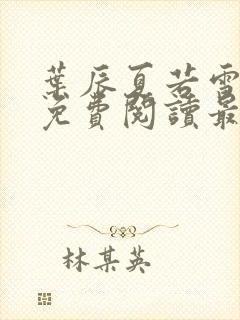 葉辰夏若雪
免費閱讀最
林某英